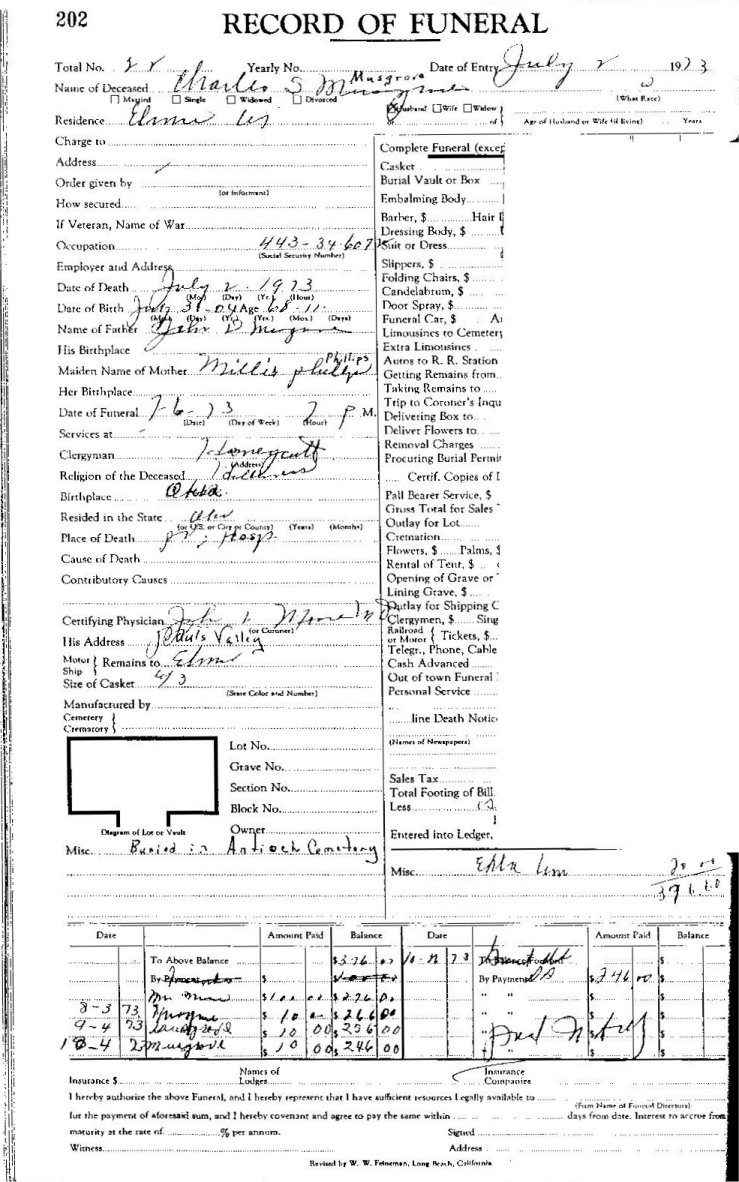 202
RECORD OF FUNERAL
Total No. Yearly No. Date of Entry July 2 1973
Name of Deceased Charles S Musgrove
Musgrove
(What Race)
☐ Married ☐ Single ☐ Widowed ☐ Divorced
Husband ☐ Wife ☐ Widow
of
Age of Husband or Wife (if living) Years
Residence
Charge to
Address
Order given by
(or Informant)
How secured
If Veteran, Name of War
Occupation 443-34-607
(Social Security Number)
Employer and Address
Date of Death July 2 - 1973
(Mo.) (Day) (Yr.) (Hour)
Date of Birth July 31-04 Age 68-11
(Mo.) (Day) (Yr.) (Yrs.) (Mos.) (Days)
Name of Father John D
His Birthplace
Maiden Name of Mother Millie Phillips
Phillips
Her Birthplace
Date of Funeral 7-6-73 2 P M.
(Date) (Day of Week) (Hour)
Services at
Clergyman Honeycutt
(Address)
Religion of the Deceased
Birthplace Okla.
Resided in the State
(or U.S. or City or County) (Years) (Months)
Place of Death Hosp.
Cause of Death
Contributory Causes
Certifying Physician John Moore MD
(or Coroner)
His Address Pauls Valley
Motor
Ship
Remains to
Size of Casket 6/3
(State Color and Number)
Manufactured by
Cemetery
Crematory
Lot No.
Grave No.
Section No.
Block No.
Owner
Diagram of Lot or Vault
Misc. Buried in Antioch Cemetery
Complete Funeral (excep
Casket
Burial Vault or Box
Embalming Body
Barber, $ Hair
Dressing Body, $
Suit or Dress
Slippers, $
Folding Chairs, $
Candelabrum, $
Door Spray, $
Funeral Car, $ A
Limousines to Cemetery
Extra Limousines
Autos to R. R. Station
Getting Remains from
Taking Remains to
Trip to Coroner's Inqu
Delivering Box to
Deliver Flowers to
Removal Charges
Procuring Burial Permit
Certif. Copies of
Pall Bearer Service, $
Gross Total for Sales
Outlay for Lot
Cremation
Flowers, $ Palms, $
Rental of Tent, $
Opening of Grave or
Lining Grave, $
Outlay for Shipping C
Clergymen, $ Sing
Railroad
or Motor
Tickets, $
Telegr., Phone, Cable
Cash Advanced
Out of town Funeral
Personal Service
line Death Notic
(Names of Newspapers)
Sales Tax
Total Footing of Bill
Less
Entered into Ledger,
Misc.
Date Amount Paid Balance Date Amount Paid Balance
To Above Balance $376.00 10-12 73
By Payments $ By Payment $246 00
$100 00 $276 00
8-3 73 $10 $266 00
9-4 73 $10 00 $256 00
10-4 73 Musgrove $10 00 $246 00
Paid
Insurance $
Names of
Lodges
Insurance
Companies
I hereby authorize the above Funeral, and I hereby represent that I have sufficient resources Legally available to
(Firm Name of Funeral Directors)
for the payment of aforesaid sum, and I hereby covenant and agree to pay the same within days from date. Interest to accrue from
maturity at the rate of % per annum. Signed
Witness Address
Revised by W. W. Feineman, Long Beach, California